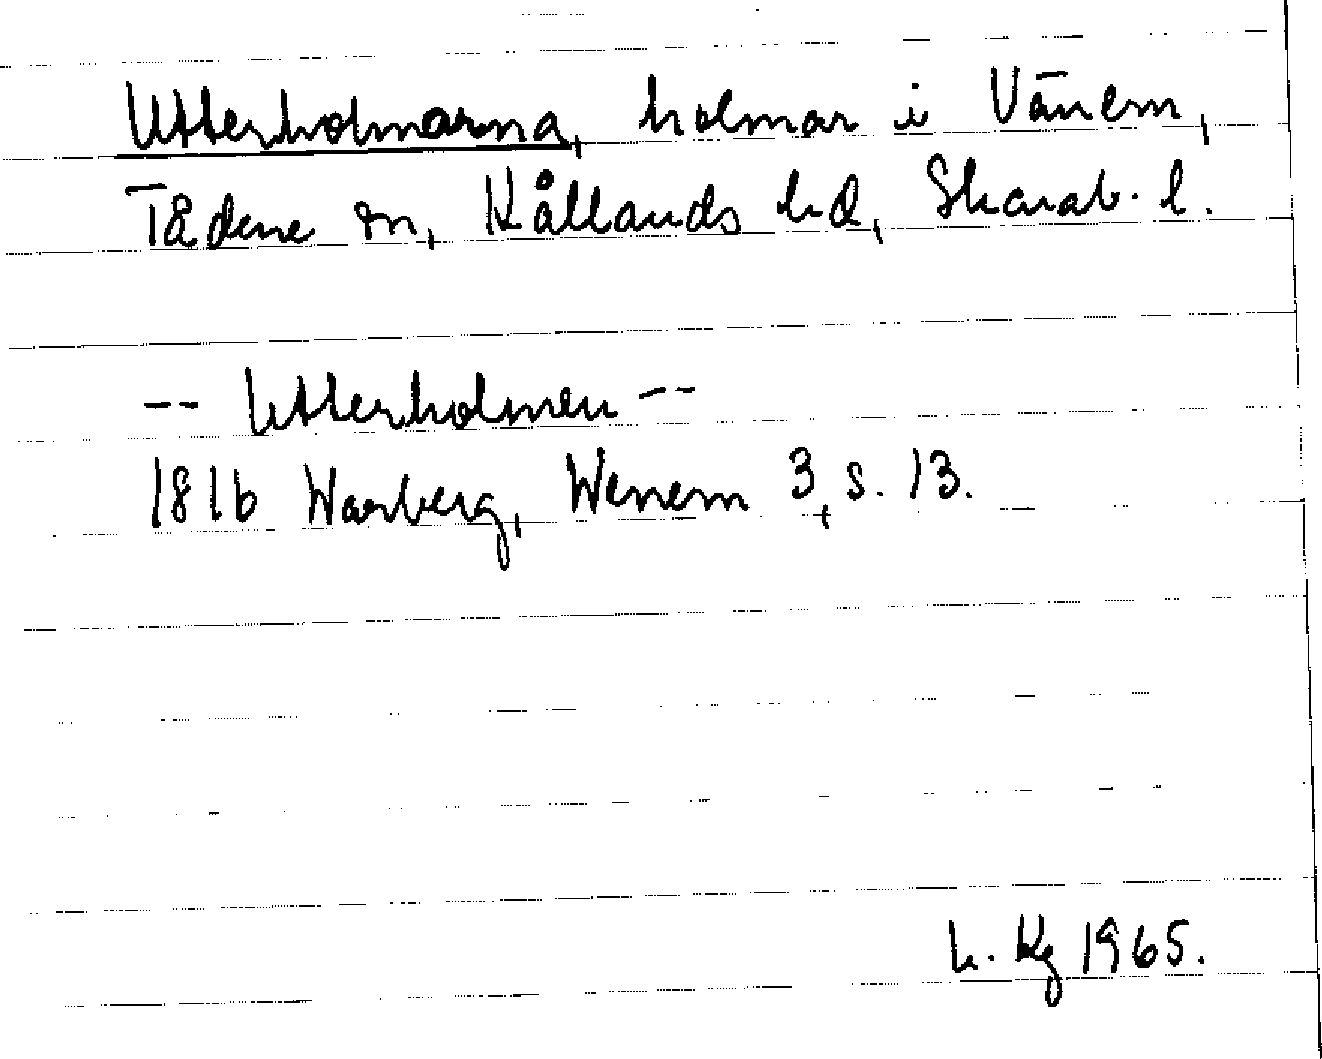 Utterholmarna, holmar i Vänern,
Tådene sn, Kållands hd, Skarab. l.
-- Utterholmen --
1816 Warberg, Wenern 3, s. 13.
L. Kg 1965.